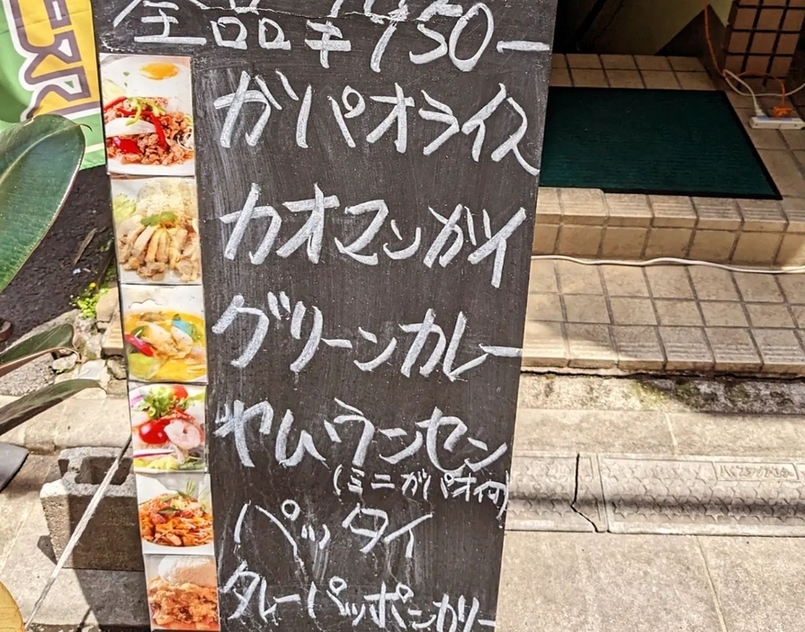 全品¥950ー
ガパオライス
カオマンガイ
グリーンカレー
ヤムウンセン
(ミニガパオ付)
パッタイ
タレーパッポンカリー